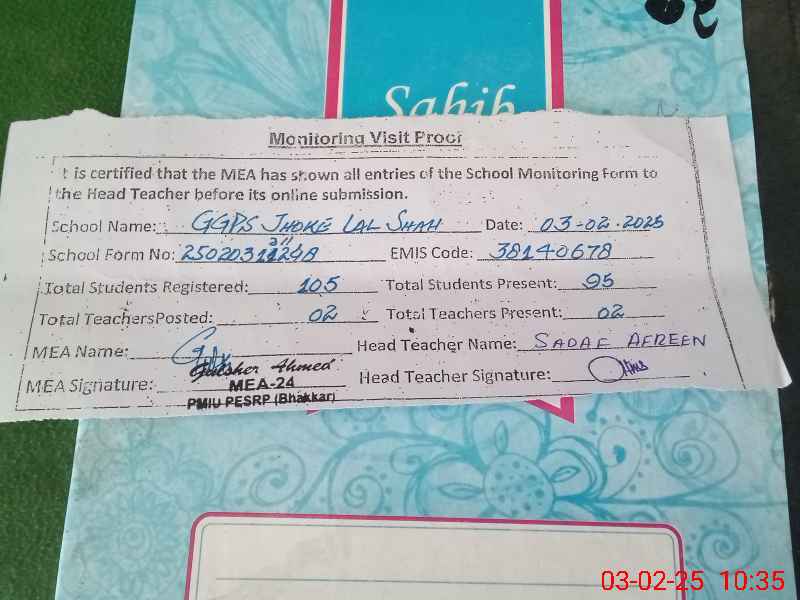 Sahib
Monitoring Visit Proof
t is certified that the MEA has shown all entries of the School Monitoring Form to
the Head Teacher before its online submission.
School Name: GGPS JHOKE LAL SHAH Date: 03-02-2025
School Form No: EMIS Code: 38140678
Total Students Registered: 105 Total Students Present: 95
Total TeachersPosted: 02 Total Teachers Present: 02
MEA Name: Head Teacher Name: SADAF AFREEN
Gulsher Ahmed
MEA Signature: MEA-24 Head Teacher Signature:
PMIU PESRP (Bhakkar)
03-02-25 10:35